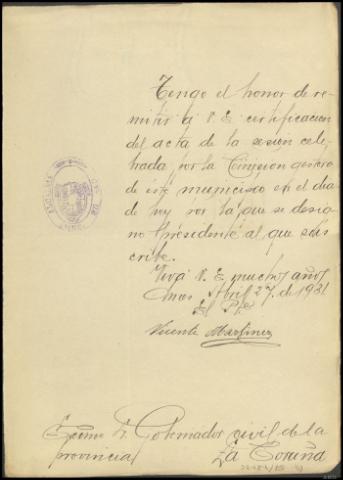 Tengo el honor de re-
mitir á V. E. certificacion
del acta de la sesion cele-
brada por la Comision gestora
de este municipio en el dia
de hoy por la que se desig
no Presidente al que sus
cribe.
Viva V. E. muchos años
Abril 27 de 1931
El Pte
Vicente Martinez
Excmo Sr Gobernador civil de la
provincia
La Coruña